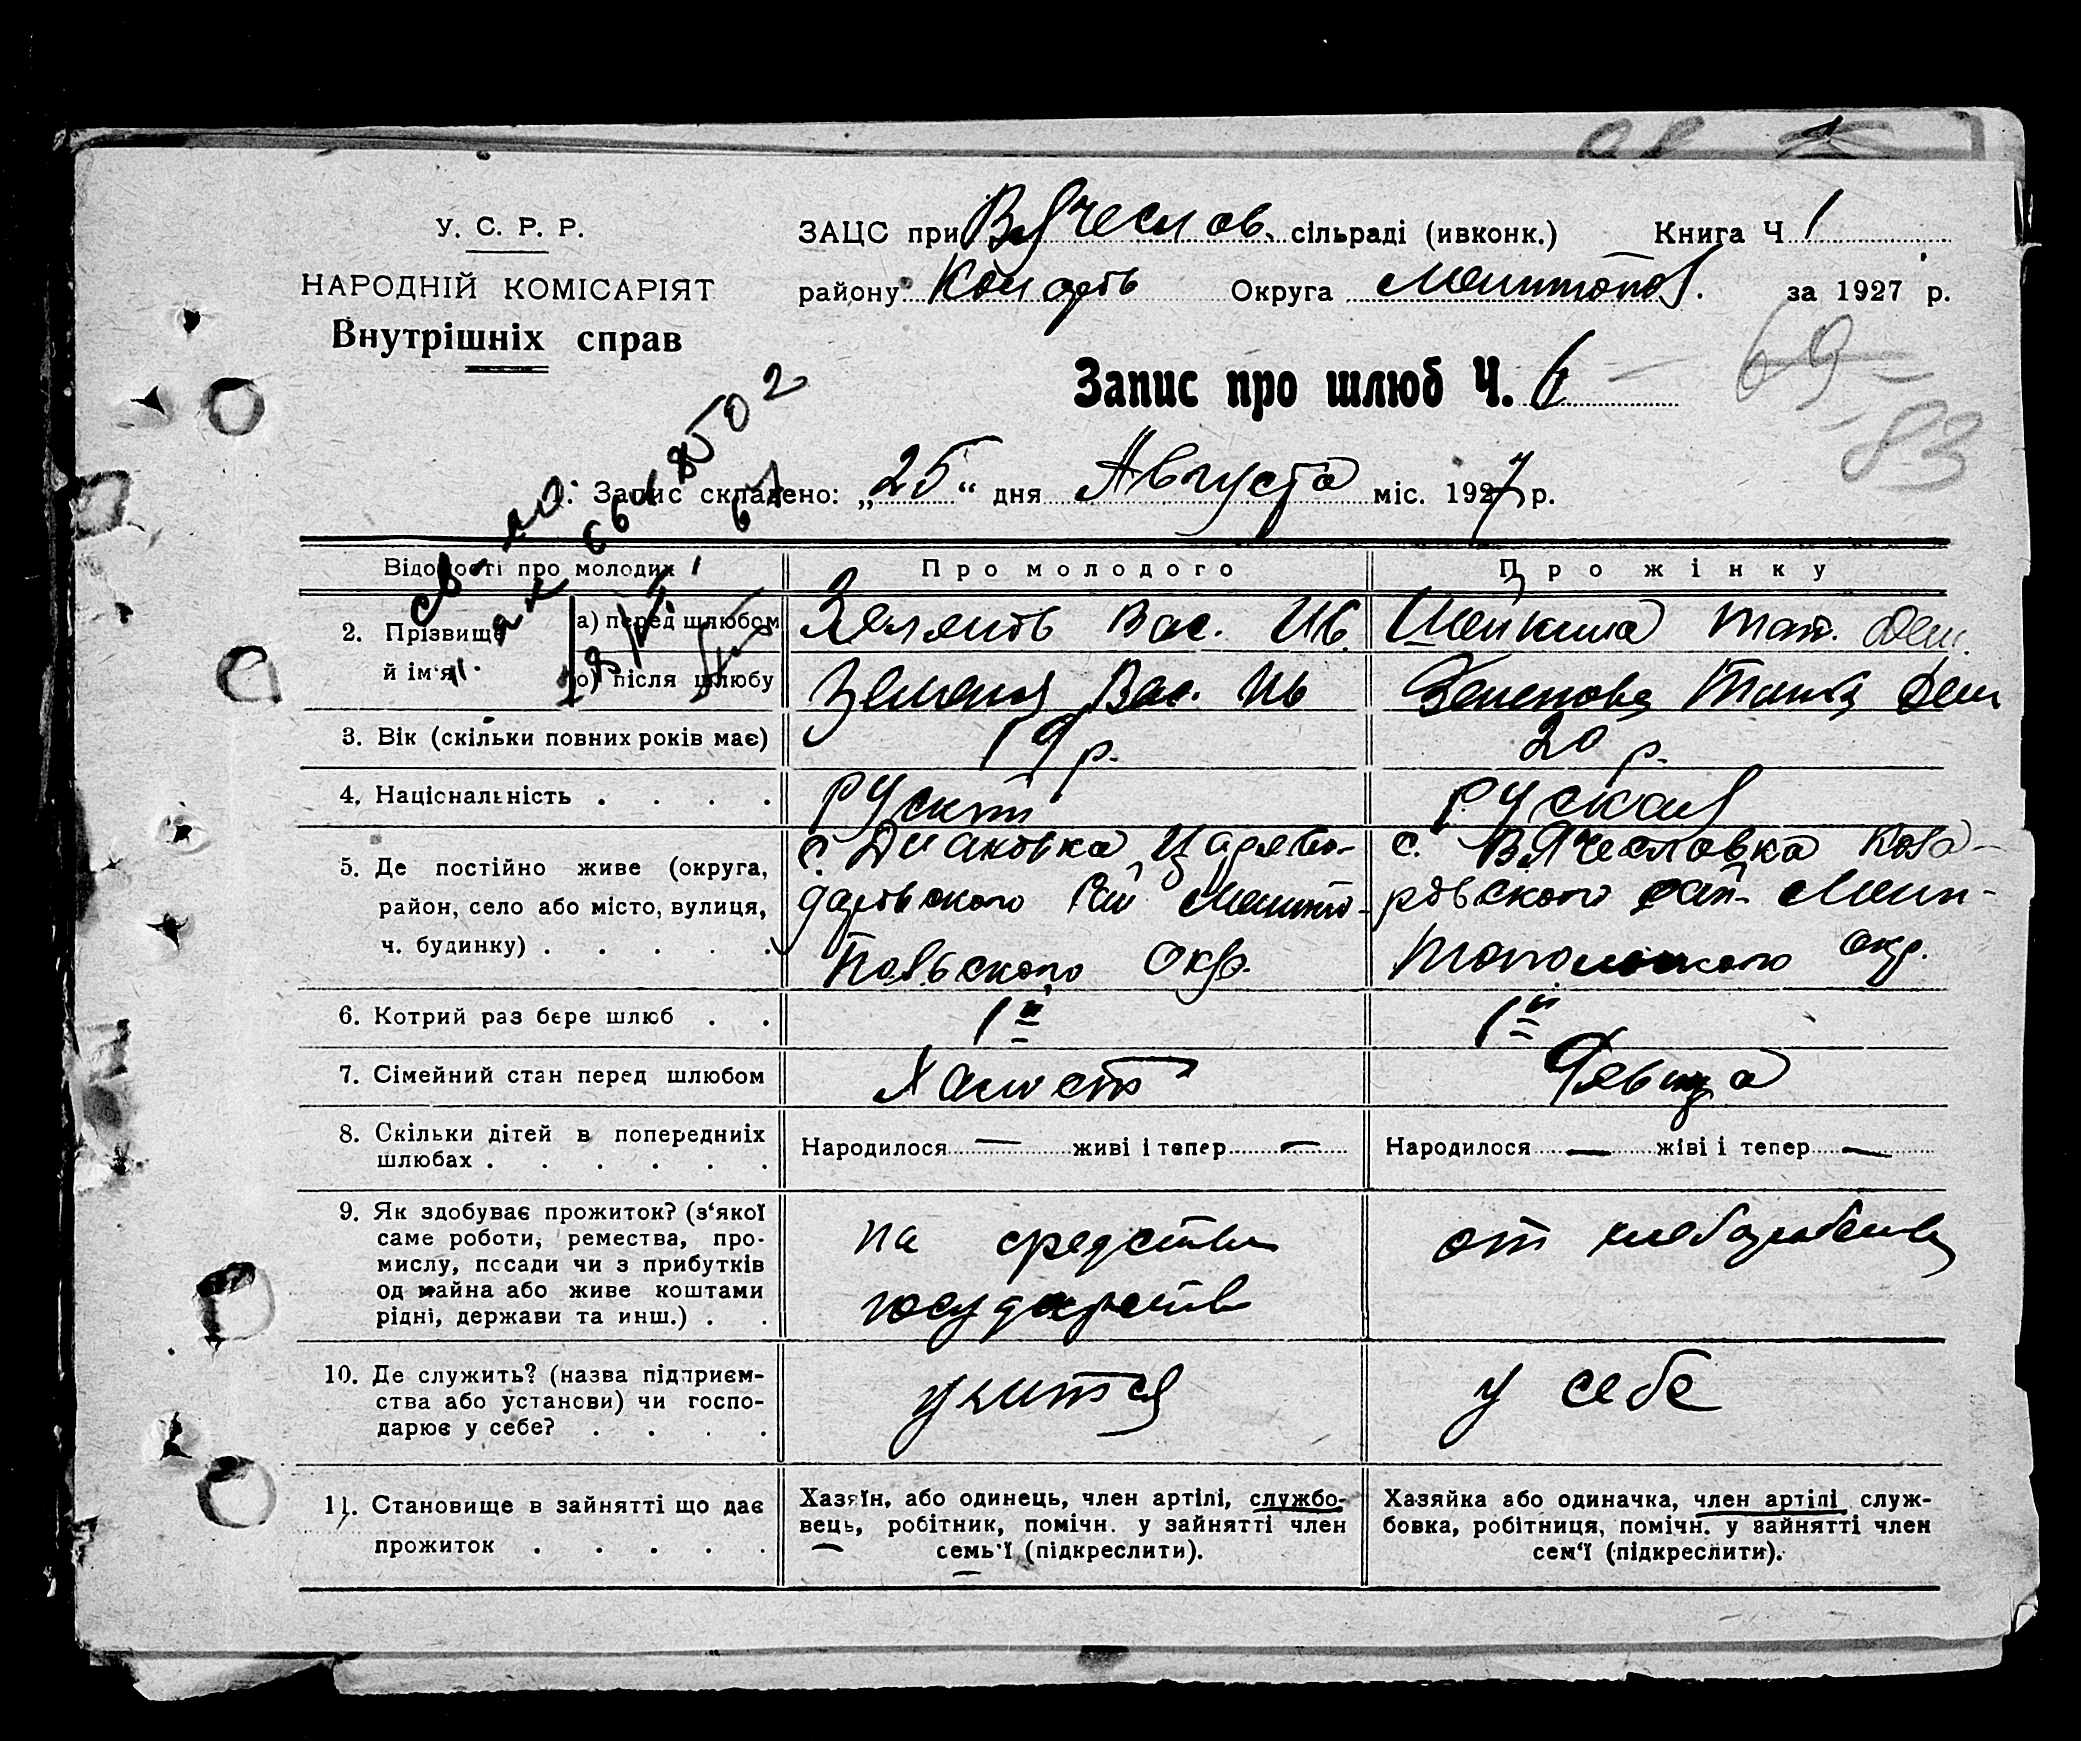 У. С. Р. Р.
НАРОДНІЙ КОМІСАРІЯТ
Внутрішніх справ
ЗАЦС при Вячеслов. сільраді (ивконк.) Книга Ч 1
району Округа за 1927 р.
Запис про шлюб Ч. 6
69
83
1. Запис складено: „25“ дня Августа міс. 1927 р.
Відомості про молодих
Про молодого
Про жінку
2. Прізвище й ім'я
а) перед шлюбом
Вас. Ив.
Тат.
б) після шлюбу
Вас. Ив
3. Вік (скільки повних років має)
19 р.
20 р.
4. Національність . . . .
руский
руская
5. Де постійно живе (округа,
район, село або місто, вулиця,
ч. будинку) . . . . .
с.
Окр.
с. Вячеславка
Окр.
6. Котрий раз бере шлюб . .
1й
1й
7. Сімейний стан перед шлюбом
Халост
Девица
8. Скільки дітей в попередниіх
шлюбах . . . . . .
Народилося — живі і тепер —
Народилося — жіві і тепер —
9. Як здобуває прожиток? (з‘якої
саме роботи, ремества, про-
мислу, посади чи з прибутків
од майна або живе коштами
рідні, держави та инш.) . .
на средства
государства
от
10. Де служить? (назва підприєм-
ства або установи) чи госпо-
дарює у себе? . . . .
учится
у себе
11. Становище в зайнятті що дає
прожиток . . . . .
Хазяїн, або одинець, член артілі, службо-
вець, робітник, помічн. у зайнятті член
семь'ї (підкреслити).
Хазяйка або одиначка, член артілі служ-
бовка, робітниця, помічн. у зайнятті член
сем‘ї (підкреслити).